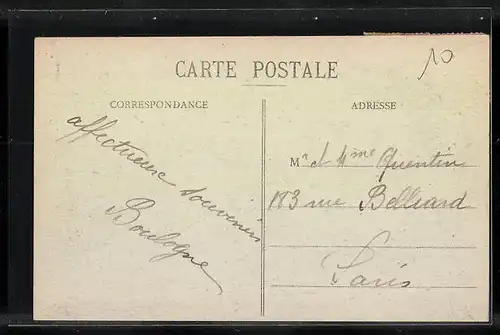 10
CARTE POSTALE
CORRESPONDANCE
affectueux souvenir
Boulogne
ADRESSE
Mr et Mme Quentin
183 rue Belliard
Paris